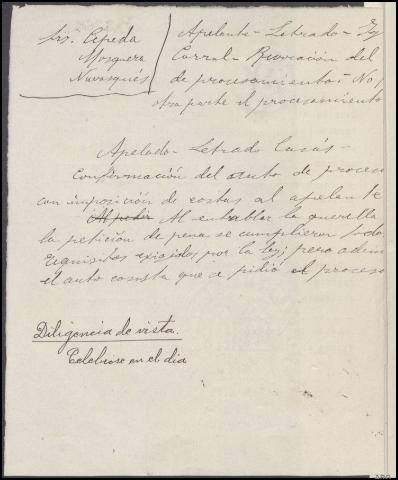 Srs. Cepeda
Mosquera
Navasqués
Apelante - Letrado -
Corral - Revocación del
de procesamiento - No
otra parte el procesamiento
Apelado - Letrado Casás -
Confirmación del auto de proces
con imposición de costas al apelante
Al pedir Al entablar la querella
la petición de pena se cumplieron todo
requisitos exigidos por la ley; pero adem
el auto consta que se pidió el proces
Diligencia de vista.
Celebrose en el dia